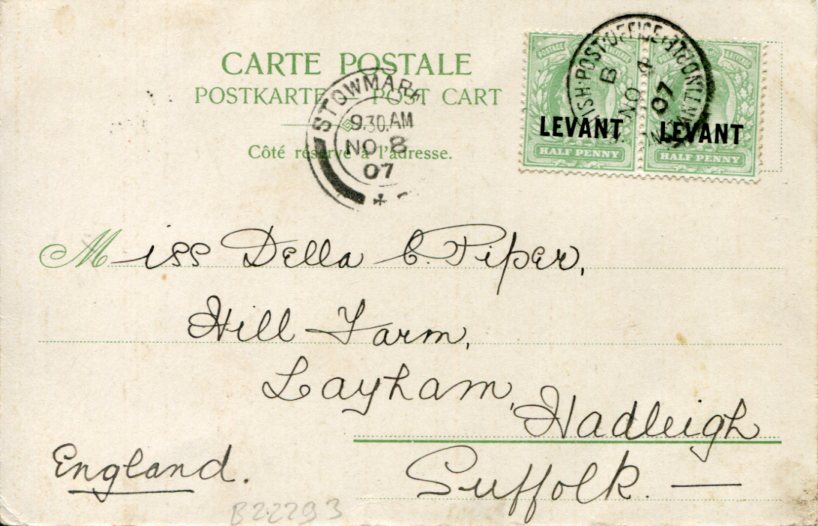 CARTE POSTALE
POSTKARTE POST CART
Côté réservé à l'adresse.
STOWMARK
9.30.AM
NO 8
07
POSTAGE
LEVANT
HALF PENNY
LEVANT
HALF PENNY
ISH·POST·OFFICE
B
NO 4
07
Miss Della C. Piper,
Hill Farm,
Layham,
Hadleigh
Suffolk. —
England.
B22293